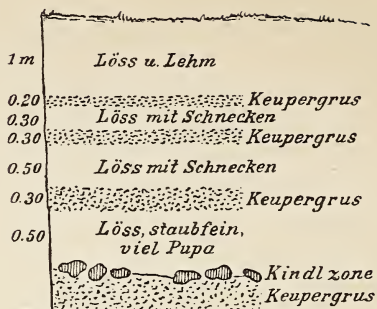 1 m Löss u. Lehm
0.20 Keupergrus
0.30 Löss mit Schnecken
0.30 Keupergrus
0.50 Löss mit Schnecken
0.30 Keupergrus
0.50 Löss, staubfein,
viel Pupa
Kindl zone
Keupergrus